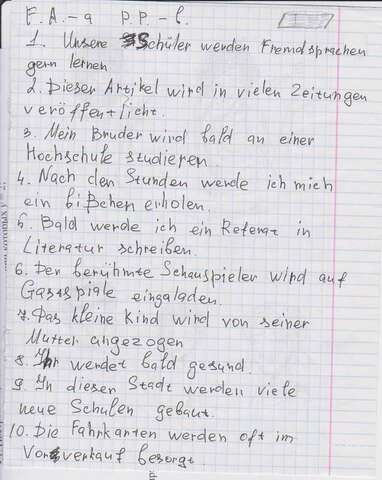 F. A. - a P. P. - b.
1. Unsere Schüler werden Fremdsprachen
gern lernen
2. Dieser Artikel wird in vielen Zeitungen
veröffentlicht.
3. Mein Bruder wird bald an einer
Hochschule studieren.
4. Nach den Stunden werde ich mich
ein bißchen erholen.
5. Bald werde ich ein Referat in
Literatur schreiben.
6. Der berühmte Schauspieler wird auf
Gastspiale eingeladen.
7. Das kleine Kind wird von seiner
Mutter angezogen
8. Ihr werdet bald gesund.
9. In dieser Stadt werden viele
neue Schulen gebaut.
10. Die Fahrkarten werden oft im
Vorverkauf besorgt.